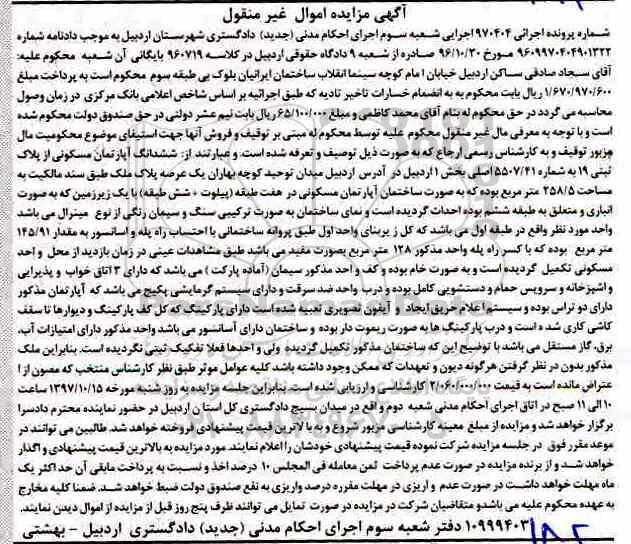 آگهی مزایده اموال غیر منقول
شماره پرونده اجرائی ۹۷۰۴۰۴ اجرایی شعبه سوم اجرای احکام مدنی (جدید) دادگستری شهرستان اردبیل به موجب دادنامه شماره
۹۶۰۹۹۷۰۴۰۴۹۰۱۳۲۲ مورخ ۹۶/۱۰/۳۰ صادره از شعبه ۹ دادگاه حقوقی اردبیل در کلاسه ۹۶۰۷۱۹ بایگانی آن شعبه محکوم علیه:
آقای سجاد صادقی ساکن اردبیل خیابان امام کوچه سینما انقلاب ساختمان ایرانیان بلوک بی طبقه سوم محکوم است به پرداخت مبلغ
۱/۶۷۰/۹۷۰/۶۰۰ ریال بابت محکوم به به انضمام خسارات تاخیر تادیه که طبق اجرائیه بر اساس شاخص اعلامی بانک مرکزی در زمان وصول
محاسبه می گردد در حق محکوم له بنام آقای محمد کاظمی و مبلغ ۶۵/۱۰۰/۰۰۰ ریال بابت نیم عشر دولتی در حق صندوق دولت محکوم شده
است و با توجه به معرفی مال غیر منقول محکوم علیه توسط محکوم له مبنی بر توقیف و فروش آنها جهت استیفای موضوع محکومیت مال
مزبور توقیف و به کارشناس رسمی ارجاع که به صورت ذیل توصیف و تعرفه شده است. و عبارتند از: ششدانگ آپارتمان مسکونی از پلاک
ثبتی ۱۹ به شماره ۵۵۰۷/۴۱ اصلی بخش ۱ اردبیل در آدرس اردبیل میدان توحید کوچه بهاران یک عرصه پلاک ملک طبق سند مالکیت به
مساحت ۲۵۸/۵ متر مربع بوده که به صورت ساختمان آپارتمان مسکونی در هفت طبقه (پیلوت + شش طبقه) با یک زیرزمین که به صورت
انباری و متعلق به طبقه ششم بوده احداث گردیده است و نمای ساختمان به صورت ترکیبی سنگ و سیمان رنگی از نوع مینرال می باشد
واحد مورد نظر واقع در طبقه اول می باشد که کل زیربنای واحد اول طبق پروانه ساختمانی با احتساب راه پله و اسانسور به مقدار ۱۴۵/۹۱
متر مربع بوده که با کسر راه پله واحد مذکور ۱۲۸ متر مربع بصورت مفید می باشد طبق مشاهدات عینی در زمان بازدید از محل واحد
مسکونی تکمیل گردیده است و به صورت خام بوده و کف واحد مذکور سیمان (آماده پارکت) می باشد که دارای ۳ اتاق خواب و پذیرایی
و اشپزخانه و سرویس حمام و دستشویی کامل بوده و درب واحد ضد سرقت و دارای سیستم گرمایشی پکیج می باشد که آپارتمان مذکور
دارای دو تراس بوده و سیستم اعلام حریق ایجاد و آیفون تصویری تعبیه شده است دارای پارکینگ که کل کف پارکینگ و دیوارها تا سقف
کاشی کاری شده است و درب پارکینگ ها به صورت ریموت دار بوده و ساختمان دارای آسانسور می باشد واحد مذکور دارای امتیازات آب،
برق، گاز مستقل می باشد با توضیح این که ساختمان مذکور تکمیل گردیده ولی واحدها فعلا تفکیک ثبتی نگردیده است. بنابراین ملک
مذکور بدون در نظر گرفتن هرگونه دیون و تعهدات که ممکن وجود داشته باشد کلیه عوامل موثر طبق نظر کارشناس منتخب که مصون از ا
عتراض مانده است به قیمت ۲/۰۶۰/۰۰۰/۰۰۰ کارشناسی و ارزیابی شده است. بنابراین جلسه مزایده به روز شنبه مورخه ۱۳۹۷/۱۰/۱۵ ساعت
۱۰ الی ۱۱ صبح در اتاق اجرای احکام مدنی شعبه دوم واقع در میدان بسیج دادگستری کل استان اردبیل در حضور نماینده محترم دادسرا
برگزار خواهد شد و مزایده از مبلغ معینه کارشناسی مزبور شروع و به بالاترین قیمت پیشنهادی فروخته خواهد شد. طالبین می توانند در
موعد مقرر فوق در جلسه مزایده شرکت نموده قیمت پیشنهادی خودشان را اعلام نمایند. مورد مزایده به بالاترین قیمت پیشنهادی واگذار
خواهد شد و از برنده مزایده در صورت عدم پرداخت ثمن معامله فی المجلس ۱۰ درصد اخذ و نسبت به پرداخت مابقی آن حداکثر یک
ماه مهلت خواهد داشت در صورت عدم واریزی در مهلت مقرره درصد واریزی به نفع صندوق دولت ضبط خواهد شد. ضمنا کلیه مخارج
به عهده محکوم علیه می باشد و متقاضیان شرکت در مزایده در صورت تمایل می توانند ظرف پنج روز قبل از مزایده از اموال دیدن نمایند.
۱۰۹۹۹۴۰۳ دفتر شعبه سوم اجرای احکام مدنی (جدید) دادگستری اردبیل - بهشتی